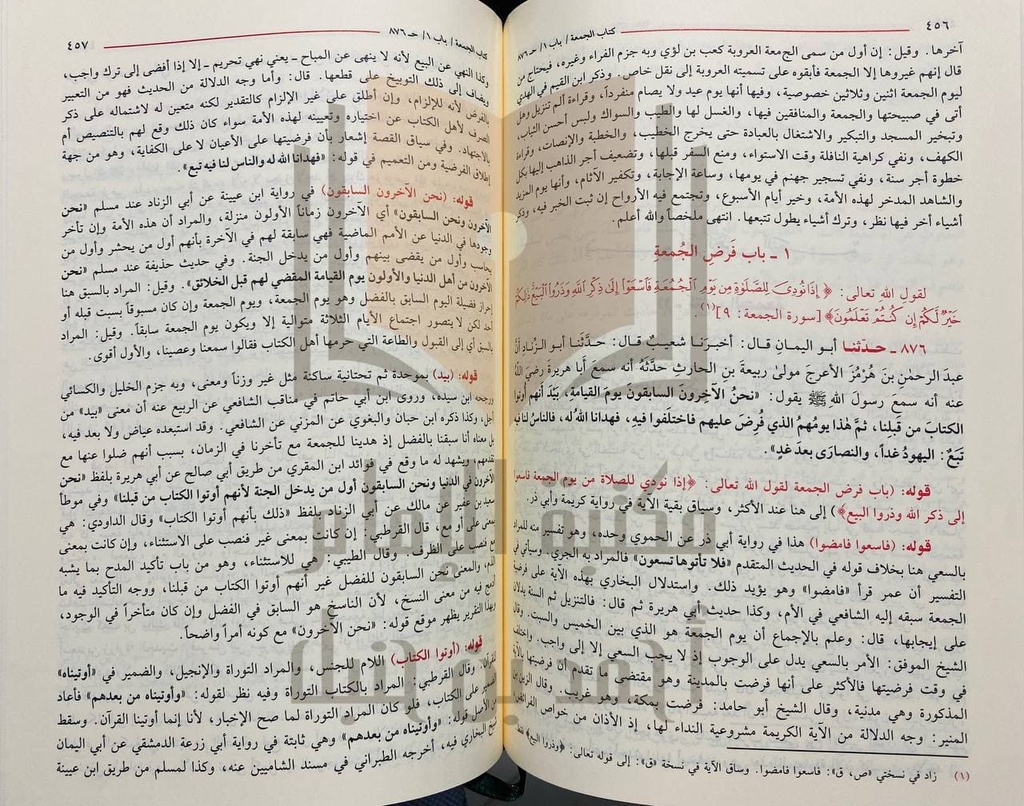 ٤٥٦
كتاب الجمعة / باب ١/ حـ ٨٧٦
آخرها. وقيل: إن أول من سمى الجمعة العروبة كعب بن لؤي وبه جزم الفراء وغيره، فيحتاج من
قال إنهم غيروها إلا الجمعة فأبقوه على تسميته العروبة إلى نقل خاص. وذكر ابن القيم في الهدي
ليوم الجمعة اثنين وثلاثين خصوصية، وفيها أنها يوم عيد ولا يصام منفرداً، وقراءة ألم تنزيل وهل
أتى في صبيحتها والجمعة والمنافقين فيها، والغسل لها والطيب والسواك ولبس أحسن الثياب،
وتبخير المسجد والتبكير والاشتغال بالعبادة حتى يخرج الخطيب، والخطبة والإنصات، وقراءة
الكهف، ونفي كراهية النافلة وقت الاستواء، ومنع السفر قبلها، وتضعيف أجر الذاهب إليها بكل
خطوة أجر سنة، ونفي تسجير جهنم في يومها، وساعة الإجابة، وتكفير الآثام، وأنها يوم المزيد
والشاهد المدخر لهذه الأمة، وخير أيام الأسبوع، وتجتمع فيه الأرواح إن ثبت الخبر فيه، وذكر
أشياء أخر فيها نظر، وترك أشياء يطول تتبعها. انتهى ملخصاً والله أعلم.
١ - باب فَرض الجُمعةِ
لقولِ اللهِ تعالى: ﴿إِذَا نُودِيَ لِلصَّلَوٰةِ مِن يَوْمِ ٱلْجُمُعَةِ فَٱسْعَوْا۟ إِلَىٰ ذِكْرِ ٱللَّهِ وَذَرُوا۟ ٱلْبَيْعَ ذَٰلِكُمْ
خَيْرٌ لَّكُمْ إِن كُنتُمْ تَعْلَمُونَ﴾ [سورة الجمعة: ٩](١).
٨٧٦ - حدّثنا أبو اليمانِ قال: أخبرَنا شعيبٌ قال: حدَّثَنا أبو الزِّنادِ أنَّ
عبدَ الرحمٰنِ بنَ هُرْمُزَ الأعرجَ مولىٰ ربيعةَ بنِ الحارثِ حدَّثَهُ أنه سمعَ أبا هريرةَ رضيَ اللهُ
عنه أنه سمعَ رسولَ اللهِ ﷺ يقول: «نحنُ الآخِرونَ السابقونَ يومَ القيامةِ، بَيْدَ أنهم أوتوا
الكتابَ من قَبلِنا، ثمَّ هٰذا يومُهمُ الذي فُرِضَ عليهم فاختلَفوا فيه، فهدانا اللهُ له، فالناسُ لنا فيه
تَبَعٌ: اليهودُ غداً، والنصارَى بعدَ غدٍ».
قوله: (باب فرض الجمعة لقول الله تعالى: ﴿إذا نودي للصلاة من يوم الجمعة فاسعوا
إلى ذكر الله وذروا البيع﴾) إلى هنا عند الأكثر، وسياق بقية الآية في رواية كريمة وأبي ذر.
قوله: (فاسعوا فامضوا) هذا في رواية أبي ذر عن الحموي وحده، وهو تفسير منه للمراد
بالسعي هنا بخلاف قوله في الحديث المتقدم «فلا تأتوها تسعون» فالمراد به الجري. وسيأتي في
التفسير أن عمر قرأ «فامضوا» وهو يؤيد ذلك. واستدلال البخاري بهذه الآية على فرضية
الجمعة سبقه إليه الشافعي في الأم، وكذا حديث أبي هريرة ثم قال: فالتنزيل ثم السنة يدلان
على إيجابها، قال: وعلم بالإجماع أن يوم الجمعة هو الذي بين الخميس والسبت. وقال
الشيخ الموفق: الأمر بالسعي يدل على الوجوب إذ لا يجب السعي إلا إلى واجب. واختلف
في وقت فرضيتها فالأكثر على أنها فرضت بالمدينة وهو مقتضى ما تقدم أن فرضيتها بالآية
المذكورة وهي مدنية، وقال الشيخ أبو حامد: فرضت بمكة، وهو غريب. وقال الزين بن
المنير: وجه الدلالة من الآية الكريمة مشروعية النداء لها، إذ الأذان من خواص الفرائض،
(١) زاد في نسختي «ص، ق»: فاسعوا فامضوا. وساق الآية في نسخة «ق»: إلى قوله تعالى: ﴿وذروا البيع﴾
كتاب الجمعة / باب ١/ حـ ٨٧٦
٤٥٧
وكذا النهي عن البيع لأنه لا ينهى عن المباح - يعني نهي تحريم - إلا إذا أفضى إلى ترك واجب،
ويضاف إلى ذلك التوبيخ على قطعها. قال: وأما وجه الدلالة من الحديث فهو من التعبير
بالفرض لأنه للإلزام، وإن أطلق على غير الإلزام كالتقدير لكنه متعين له لاشتماله على ذكر
الصرف لأهل الكتاب عن اختياره وتعيينه لهذه الأمة سواء كان ذلك وقع لهم بالتنصيص أم
بالاجتهاد. وفي سياق القصة إشعار بأن فرضيتها على الأعيان لا على الكفاية، وهو من جهة
إطلاق الفرضية ومن التعميم في قوله: «فهدانا الله له والناس لنا فيه تبع».
قوله: (نحن الآخرون السابقون) في رواية ابن عيينة عن أبي الزناد عند مسلم «نحن
الآخرون ونحن السابقون» أي الآخرون زماناً الأولون منزلة، والمراد أن هذه الأمة وإن تأخر
وجودها في الدنيا عن الأمم الماضية فهي سابقة لهم في الآخرة بأنهم أول من يحشر وأول من
يحاسب وأول من يقضى بينهم وأول من يدخل الجنة. وفي حديث حذيفة عند مسلم «نحن
الآخرون من أهل الدنيا والأولون يوم القيامة المقضي لهم قبل الخلائق». وقيل: المراد بالسبق هنا
إحراز فضيلة اليوم السابق بالفضل وهو يوم الجمعة، ويوم الجمعة وإن كان مسبوقاً بسبت قبله أو
أحد لكن لا يتصور اجتماع الأيام الثلاثة متوالية إلا ويكون يوم الجمعة سابقاً. وقيل: المراد
بالسبق أي إلى القبول والطاعة التي حرمها أهل الكتاب فقالوا سمعنا وعصينا، والأول أقوى.
قوله: (بيد) بموحدة ثم تحتانية ساكنة مثل غير وزناً ومعنى، وبه جزم الخليل والكسائي
ورجحه ابن سيده، وروى ابن أبي حاتم في مناقب الشافعي عن الربيع عنه أن معنى «بيد» من
أجل، وكذا ذكره ابن حبان والبغوي عن المزني عن الشافعي. وقد استبعده عياض ولا بعد فيه،
بل معناه أنا سبقنا بالفضل إذ هدينا للجمعة مع تأخرنا في الزمان، بسبب أنهم ضلوا عنها مع
تقدمهم، ويشهد له ما وقع في فوائد ابن المقري من طريق أبي صالح عن أبي هريرة بلفظ «نحن
الآخرون في الدنيا ونحن السابقون أول من يدخل الجنة لأنهم أوتوا الكتاب من قبلنا» وفي موطأ
سعيد بن عفير عن مالك عن أبي الزناد بلفظ «ذلك بأنهم أوتوا الكتاب» وقال الداودي: هي
بمعنى على أو مع، قال القرطبي: إن كانت بمعنى غير فنصب على الاستثناء، وإن كانت بمعنى
مع فنصب على الظرف. وقال الطيبي: هي للاستثناء، وهو من باب تأكيد المدح بما يشبه
الذم، والمعنى نحن السابقون للفضل غير أنهم أوتوا الكتاب من قبلنا، ووجه التأكيد فيه ما
أدمج فيه من معنى النسخ، لأن الناسخ هو السابق في الفضل وإن كان متأخراً في الوجود،
وبهذا التقرير يظهر موقع قوله: «نحن الآخرون» مع كونه أمراً واضحاً.
قوله: (أوتوا الكتاب) اللام للجنس، والمراد التوراة والإنجيل، والضمير في «أوتيناه»
للقرآن. وقال القرطبي: المراد بالكتاب التوراة وفيه نظر لقوله: «وأوتيناه من بعدهم» فأعاد
الضمير على الكتاب، فلو كان المراد التوراة لما صح الإخبار، لأنا إنما أوتينا القرآن. وسقط
من الأصل قوله: «وأوتيناه من بعدهم» وهي ثابتة في رواية أبي زرعة الدمشقي عن أبي اليمان
شيخ البخاري فيه، أخرجه الطبراني في مسند الشاميين عنه، وكذا لمسلم من طريق ابن عيينة
مكتبة الإمام
أحمد بن حنبل